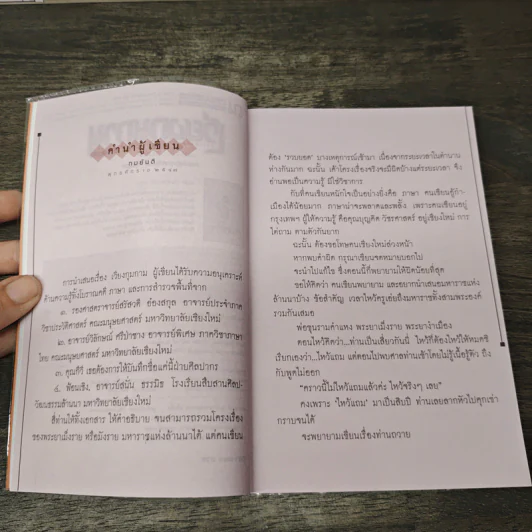 คำนำผู้เขียน
ทมยันตี
การนำเสนอเรื่อง เวียงกุมกาม ผู้เขียนได้รับความอนุเคราะห์
ด้านความรู้ทั้งโบราณคดี ภาษา และการสำรวจพื้นที่จาก
๑. รองศาสตราจารย์สรัสวดี อ๋องสกุล อาจารย์ประจำภาค
วิชาประวัติศาสตร์ คณะมนุษยศาสตร์ มหาวิทยาลัยเชียงใหม่
๒. อาจารย์วิลักษณ์ ศรีป่าซาง อาจารย์พิเศษ ภาควิชาภาษา
ไทย คณะมนุษยศาสตร์ มหาวิทยาลัยเชียงใหม่
๓. คุณกีรี เธอต้องการให้บันทึกชื่อแค่นี้ฝ่ายศิลปากร
๔. พ้อนเชิง, อาจารย์สนั่น ธรรมธิ โรงเรียนสืบสานศิลป-
วัฒนธรรมล้านนา มหาวิทยาลัยเชียงใหม่
สี่ท่านให้ทั้งเอกสาร ให้คำอธิบาย จนสามารถรวมโครงเรื่อง
ของพระยาเม็งราย หรือมังราย มหาราชแห่งล้านนาได้ แต่คนเขียน
ต้อง 'รวบยอด' บางเหตุการณ์เข้ามา เนื่องจากระยะเวลาในตำนาน
ห่างกันมาก ฉะนั้น เค้าโครงเรื่องจริงจะมีผิดบ้างแค่ระยะเวลา จึง
อ่านพอเป็นความรู้ มิใช่วิชาการ
กับที่คนเขียนหนักใจเป็นอย่างยิ่งคือ ภาษา คนเขียนอู้กำ-
เมืองได้น้อยมาก ภาษาน่าจะพลาดและพลั้ง เพราะคนเขียนอยู่
กรุงเทพฯ ผู้ให้ความรู้ คือคุณบุญคิด วัชรศาสตร์ อยู่เชียงใหม่ การ
ไต่ถาม ตามตัวกันยาก
ฉะนั้น ต้องขอโทษคนเชียงใหม่ล่วงหน้า
หากพบคำผิด กรุณาเขียนจดหมายบอกไป
จะนำไปแก้ไข ซึ่งตอนนี้ก็พยายามให้ผิดน้อยที่สุด
ขอให้คิดว่า คนเขียนพยายาม และอยากนำเสนอมหาราชแห่ง
ล้านนาบ้าง ข้อสำคัญ เวลาไหว้ครูเอ่ยถึงมหาราชทั้งสามพระองค์
รวมกันเสมอ
พ่อขุนรามคำแหง พระยาเม็งราย พระยางำเมือง
ตอนไหว้คิดว่า...ท่านเป็นเสี่ยวกันนี่ ไหว้สิก็ต้องไหว้ให้หมดซิ
เรียกเองว่า...ไหว้แถม แต่ตอนไปพบศาลท่านเข้าโดยไม่รู้เนื้อรู้ตัว ถึง
กับพูดไม่ออก
“คราวนี้ไม่ไหว้แถมแล้วค่ะ ไหว้จริงๆ เลย”
คงเพราะ 'ไหว้แถม' มาเป็นสิบปี ท่านเลยลากตัวไปคุกเข่า
กราบจนได้
จะพยายามเขียนเรื่องท่านถวาย